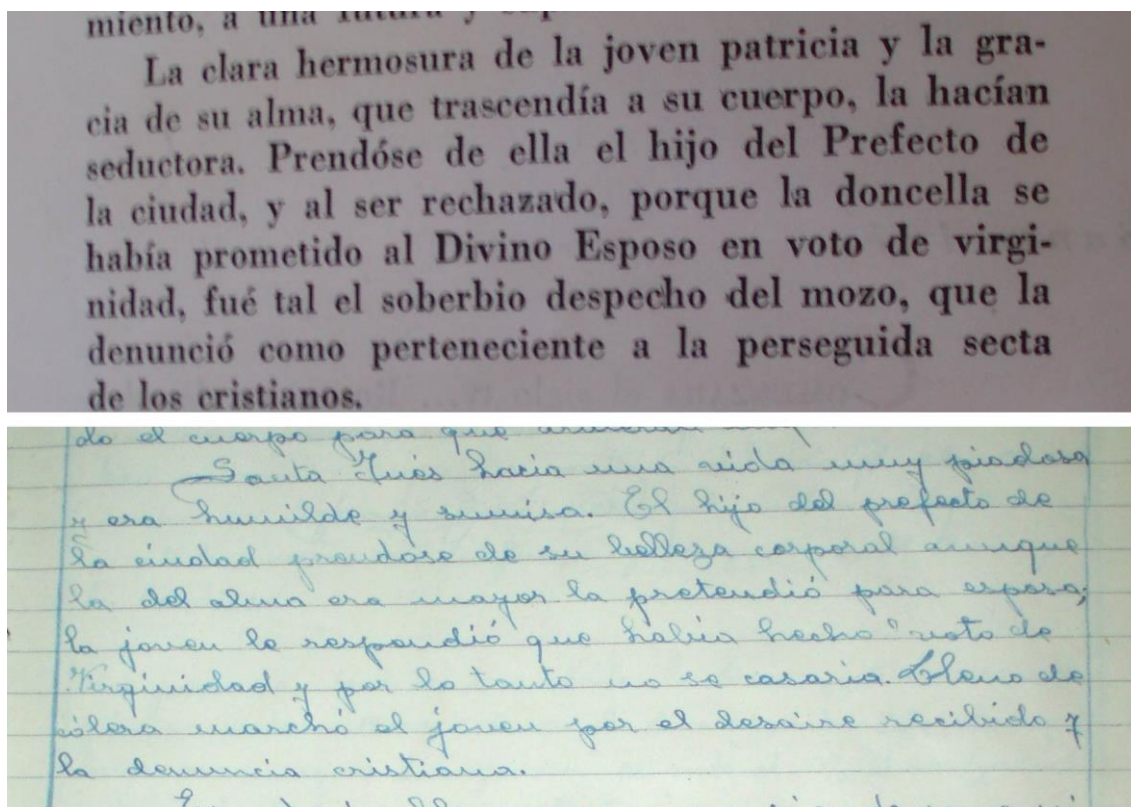 miento, a una futura y
La clara hermosura de la joven patricia y la gra-
cia de su alma, que trascendía a su cuerpo, la hacían
seductora. Prendóse de ella el hijo del Prefecto de
la ciudad, y al ser rechazado, porque la doncella se
había prometido al Divino Esposo en voto de virgi-
nidad, fué tal el soberbio despecho del mozo, que la
denunció como perteneciente a la perseguida secta
de los cristianos.
do el cuerpo para que
Santa Inés hacia una vida muy piadosa
y era humilde y sumisa. El hijo del prefecto de
la ciudad prendose de su belleza corporal aunque
la del alma era mayor la pretendió para esposa;
la joven le respondió que habia hecho "voto de
Virginidad y por lo tanto no se casaria. Lleno de
cólera marchó el joven por el desaire recibido y
la denuncia cristiana.